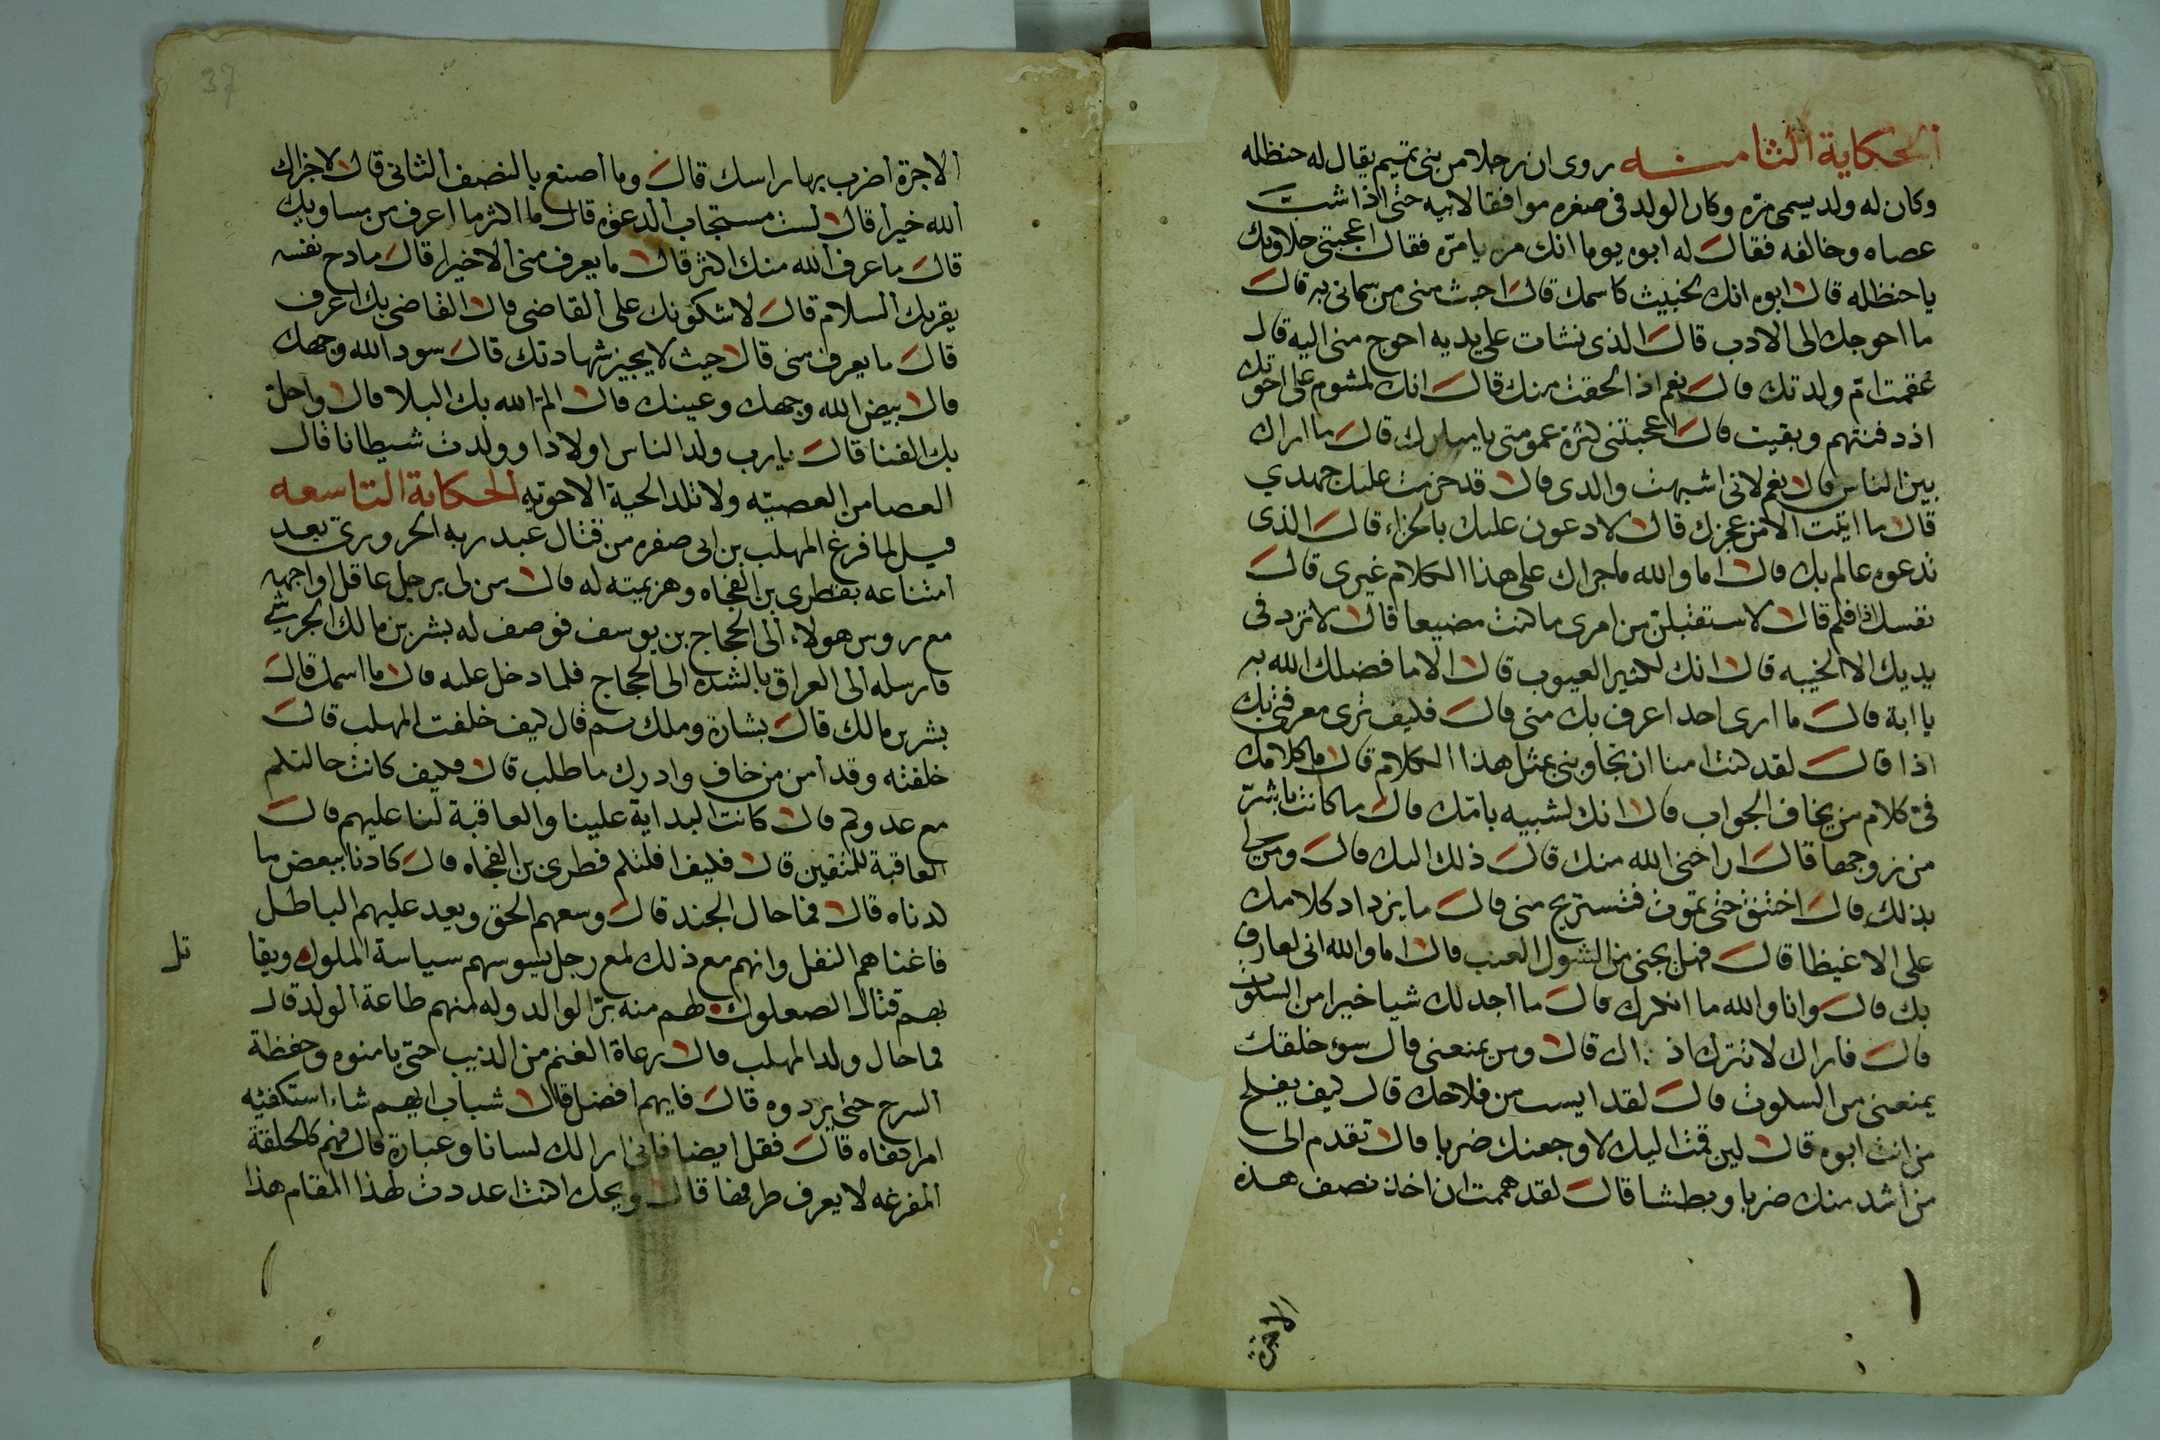 الحكاية الثامنه روى ان رجلا من بنى تميم يقال له حنظله
وكان له ولد يسمى مرّه وكان الولد فى صغره موافقا لابيه حتى اذا شبّ
عصاه وخالفه فقال له ابوه يوما انك مر يا مرّه فقال اعجبتنى حلاوتك
يا حنظله قال ابوه انك لخبيث كاسمك قال اخبث منى من سمانى به قال
ما احوجك الى الادب قال الذى نشات على يديه احوج منى اليه قال
عقمت امّ ولدتك قال نعم اذا لحقت منك قال انك لمشوم على اخوتك
اذ دفنتهم وبقيت قال اعجبتنى كثرة عمومتى يا مبارك قال ما اراك
بين الناس قال نعم لانى اشبهت والدى قال قد حزمت عليك جهدي
قال ما اتيت الا من عجزك قال لادعون عليك بالجزاء قال الذى
تدعوه عالم بك قال اما والله ما جراك على هذا الكلام غيرى قال
نفسك اذا فلم قال لاستقبلن من امرى ما كنت مضيعا قال لا تزد فى
يديك الا الخيبه قال انك لكثير العيوب قال الا ما فضلك الله به
يا ابة قال ما ارى احدا اعرف بك منى قال فكيف ترى معرفتى بك
اذا قال لقد كنت امنا ان تجاوبنى بمثل هذا الكلام قال ما كلامك
فى كلام من يخاف الجواب قال انك لشبيه بامك قال ما كانت باشرّ
من زوجها قال اراحنى الله منك قال ذلك اليك قال ومن لى
بذلك قال اختنق حتى تموت فتستريح منى قال ما يزداد كلامك
على الا غيظا قال فهل يجنى من الشوك العنب قال اما والله انى لعارف
بك قال وانا والله ما انكرك قال ما أجد لك شيا خيرا من السكوت
قال فاراك لا تترك اذ ال قال ومن يمنعنى قال سوء خلقك
يمنعنى من السكوت قال لقد ايست من فلاحك قال كيف يفلح
من انت ابوه قال لين قمت اليك لاوجعنك ضربا قال تقدم الى
من اشد منك ضربا وبطشا قال لقد هممت ان اخذ نصف هذه
الاجرة
37
الاجرة أضرب بها راسك قال وما أصنع بالنصف الثانى قال لا جزاك
الله خيرا قال لست مستجاب الدعوة قال ما اكثر ما اعرف من مساويك
قال ما عرف الله منك اكثر قال ما يعرف منى الا خيرا قال مادح نفسه
يقريك السلام قال لاشكونك على القاضى قال القاضى بك اعرف
قال ما يعرف منى قال حيث لا يجيز شهادتك قال سود الله وجهك
قال بيض الله وجهك وعينك قال المّ الله بك البلا قال واحلّ
بك الفنا قال يا رب ولد الناس اولادا وولدت شيطانا قال
العصا من العصيّه ولا تلد الحية الا حويه الحكاية التاسعه
قيل لما فرغ المهلب بن ابى صفره من قتال عبد ربه الحرورى بعد
امتناعه بقطرى بن الفجاه وهزيمته له قال من لى برجل عاقل اواجهه
مع روس هولاء الى الحجاج بن يوسف فوصف له بشر بن مالك الجرشى
فارسله الى العراق بالشده الى الحجاج فلما دخل عليه قال ما اسمك قال
بشر بن مالك قال بشارة وملك ثم قال كيف خلفت المهلب قال
خلفته وقد أمن من خاف وادرك ما طلب قال فكيف كانت حالتكم
مع عدوكم قال كانت البداية علينا والعاقبة لنا عليهم قال
العاقبة للمتقين قال فكيف افلتكم قطرى بن الفجاه قال كادنا ببعض ما
كدناه قال فما حال الجند قال وسعهم الحق وبعد عليهم الباطل
فاغناهم النفل وانهم مع ذلك لمع رجل يسوسهم سياسة الملوك ويقا
تل
بهم قتال الصعلوك لهم منه برّ الوالد وله منهم طاعة الولد قال
فما حال ولد المهلب قال رعاة الغنم من الذيب حتى يامنوه وحفظة
السرح حتى يردوه قال فايهم افضل قال شباب ايهم شاء استكفيته
امرا كفاه قال فقل ايضا فانى ارا لك لسانا وعبارة قال هم كالحلقة
المفرغه لا يعرف طرفها قال ويحك اكنت اعددت لهذا المقام هذا